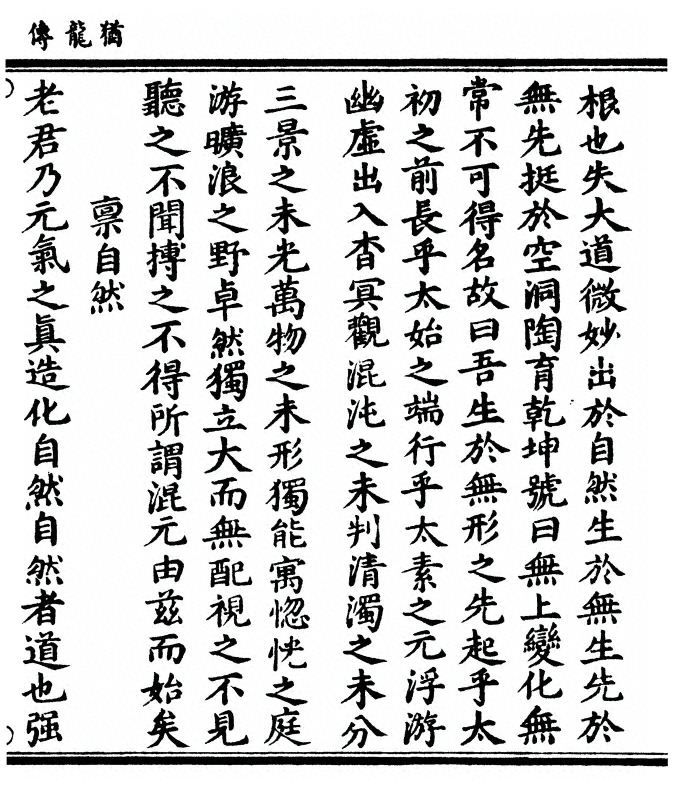 猶龍傳
根也夫大道微妙出於自然生於無生先於
無先挺於空洞陶育乾坤號曰無上變化無
常不可得名故曰吾生於無形之先起乎太
初之前長乎太始之端行乎太素之元浮游
幽虛出入杳冥觀混沌之未判清濁之未分
三景之未光萬物之未形獨能寓惚怳之庭
游曠浪之野卓然獨立大而無配視之不見
聽之不聞搏之不得所謂混元由茲而始矣
稟自然
老君乃元氣之眞造化自然自然者道也强